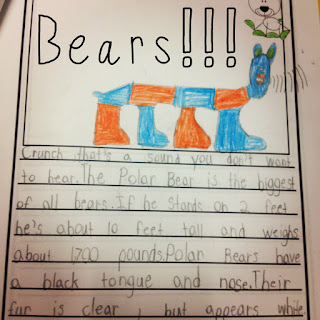 Bears!!!
Crunch that's a sound you don't want
to hear. The Polar Bear is the biggest
of all bears. If he stands on 2 feet
he's about 10 feet tall and weighs
about 1,700 pounds. Polar Bears have
a black tongue and nose. Their
fur is clear, but appears white